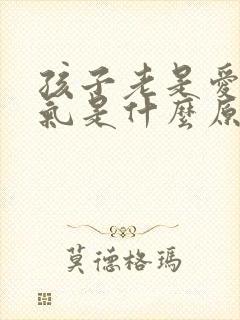 孩子老是愛
氣是什麼原
莫德格瑪